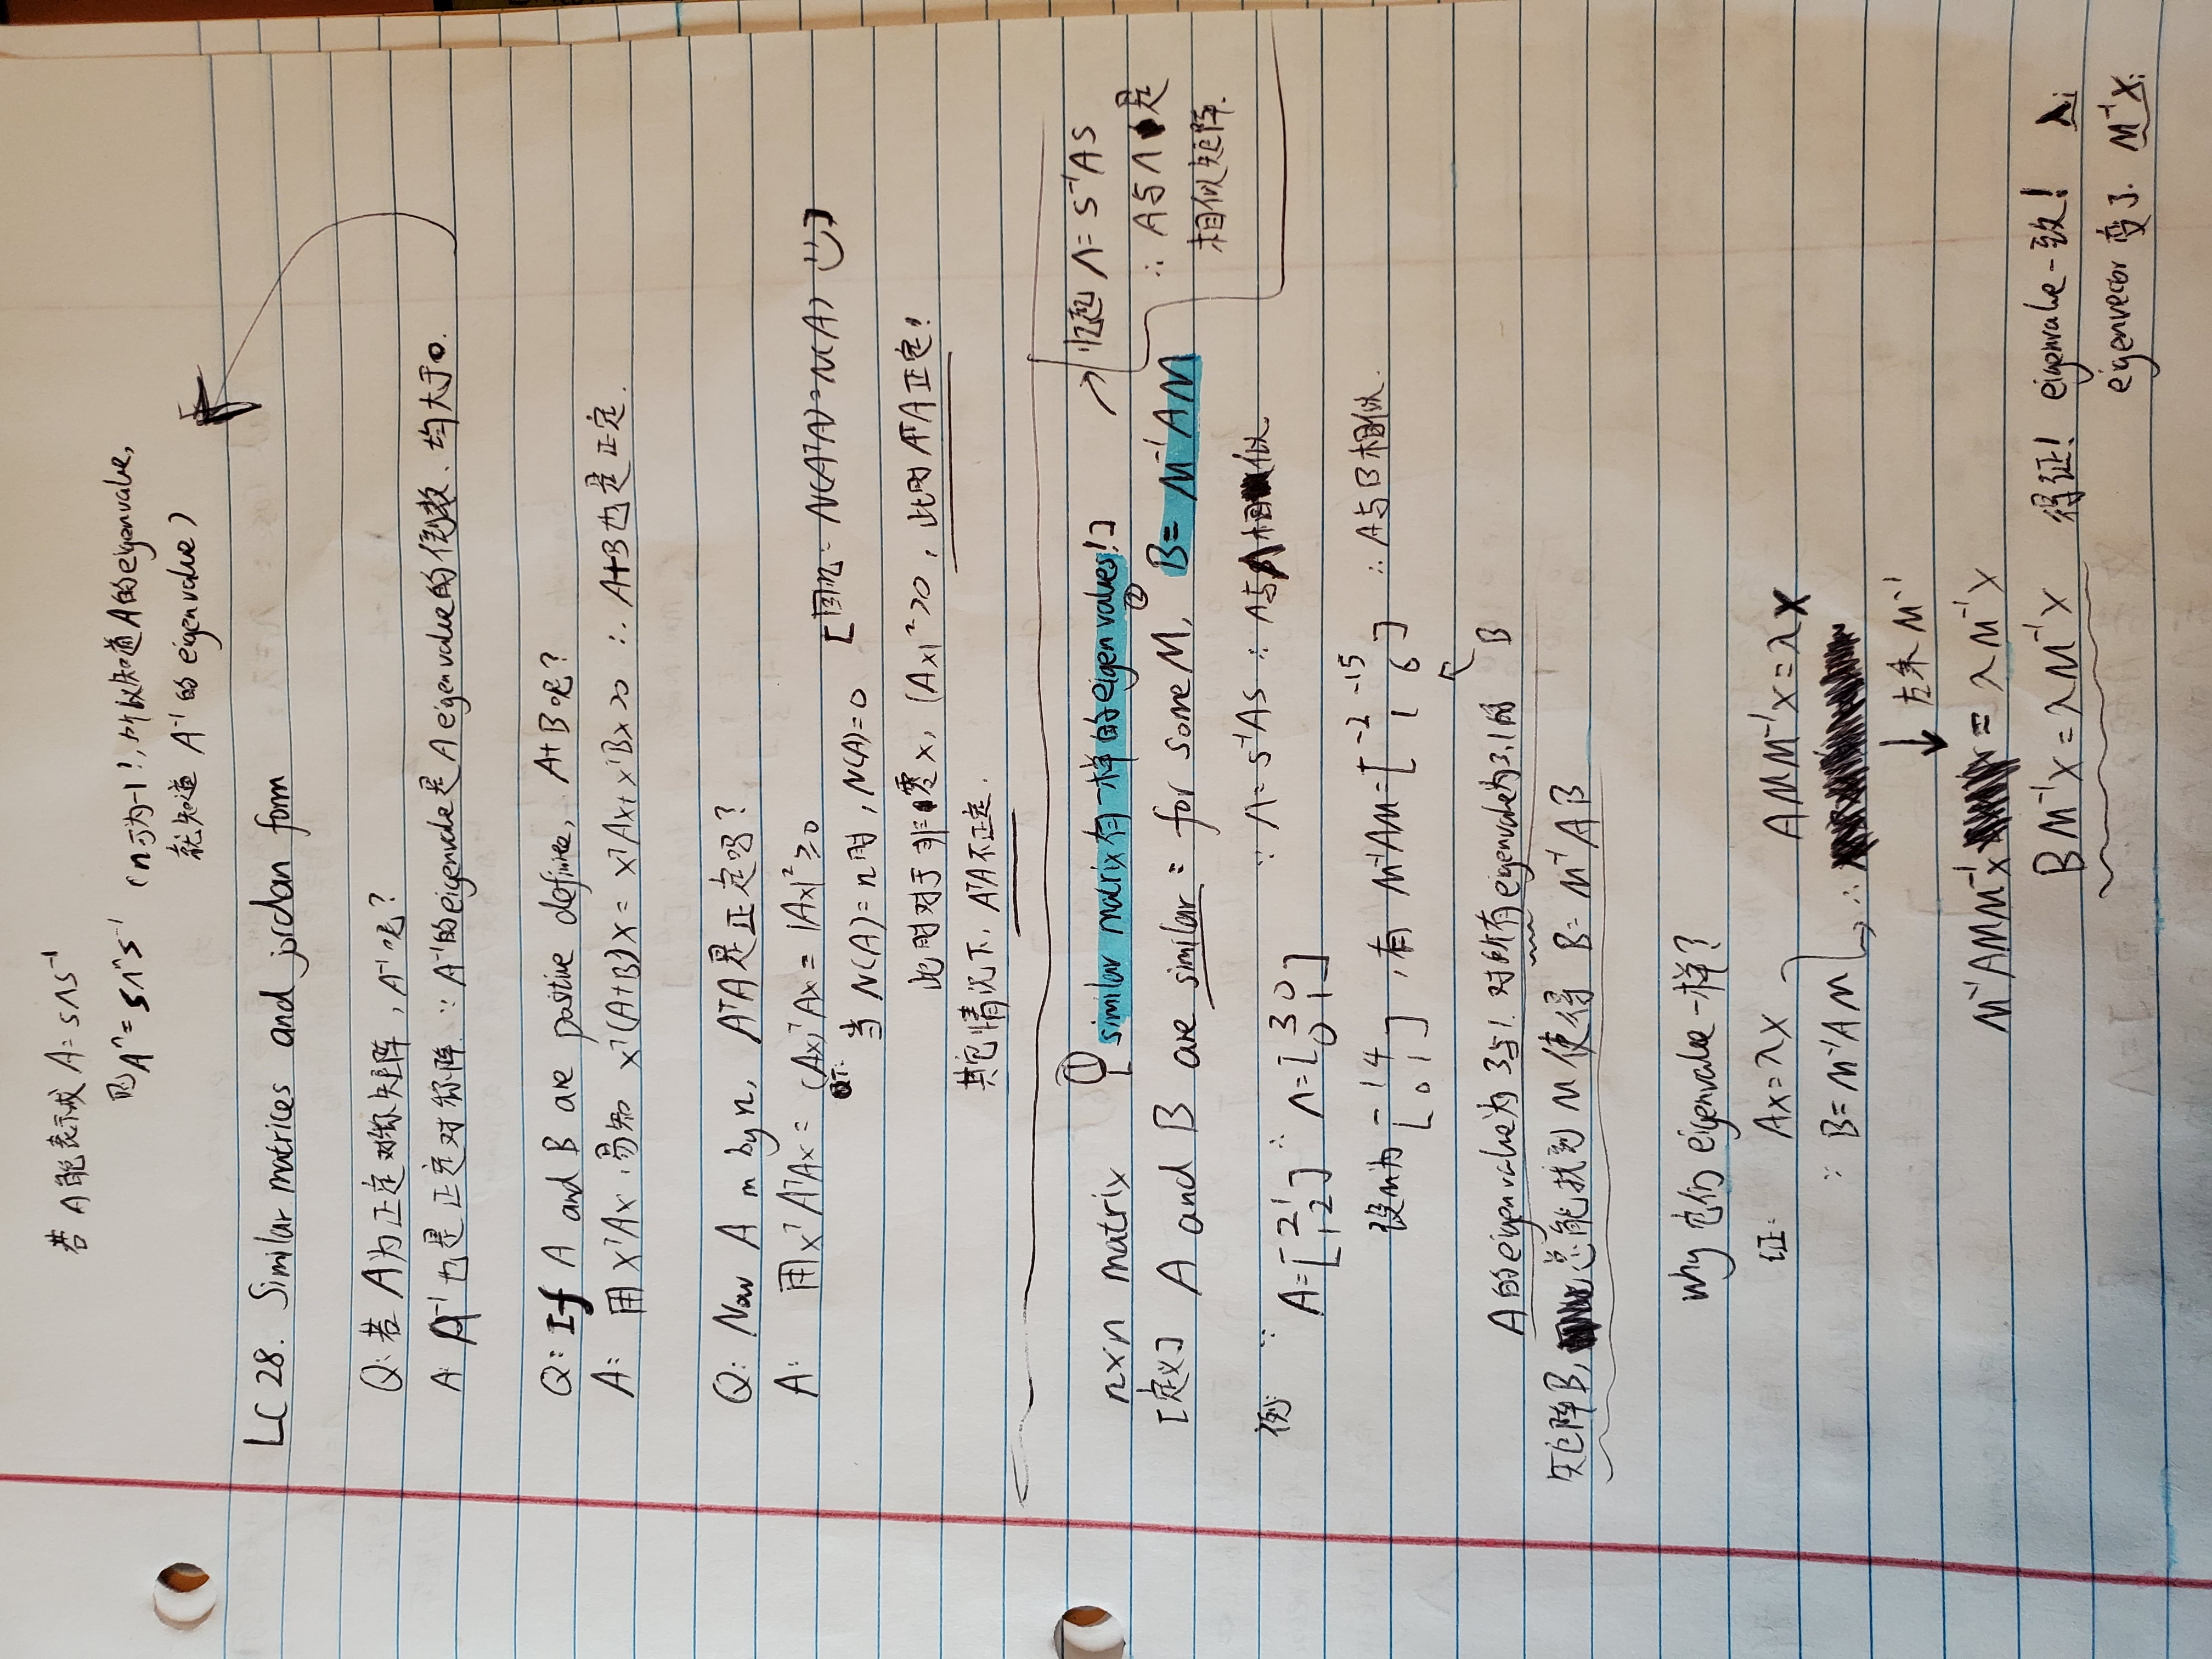 若A能表示成 A=SΛS⁻¹
则Aⁿ=SΛⁿS⁻¹ (n可为-1!, 所以知道A的eigenvalue,
就知道 A⁻¹的eigenvalue)
LC 28. Similar matrices and jordan form
Q: 若 A为正定对称矩阵, A⁻¹呢?
A: A⁻¹也是正定对称阵 ∵ A⁻¹的eigenvalue是A eigenvalue的倒数、均大于0.
Q: If A and B are positive definite, A+B呢?
A: 用XᵀAX, 易知 Xᵀ(A+B)X = XᵀAX+XᵀBX>0 ∴ A+B也是正定.
Q: Now A m by n, AᵀA是正定吗?
A: 用XᵀAᵀAX = (AX)ᵀAX = |AX|²≥0
当 N(A)=n时, N(A)=0 [回忆: N(AᵀA)=N(A)]
此时对于非零X, |AX|²>0, 此时AᵀA正定!
其它情况下, AᵀA不正定.
n×n matrix [① similar matrix有一样的eigenvalues!] → 忆起 Λ=S⁻¹AS
[定义] A and B are similar: for some M, ② B=M⁻¹AM ∴ A与Λ是
相似矩阵.
例: ∵ Λ=S⁻¹AS ∴ A与Λ相似.
A=[2 1
1 2] ∴ Λ=[3 0
0 1]
设M为 [1 4
0 1], 有 M⁻¹AM=[-2 -15
1 6] ∴ A与B相似.
B
A的eigenvalue为3与1. 对所有eigenvalue为3,1的
矩阵B, 总能找到 M 使得 B=M⁻¹AB
Why 它们 eigenvalue 一样?
证: AX=λX AMM⁻¹X=λX
∵ B=M⁻¹AM ∴
↓ 左乘 M⁻¹
M⁻¹AMM⁻¹X = λM⁻¹X
BM⁻¹X=λM⁻¹X 得证! eigenvalue一致! λᵢ
eigenvector 变了. M⁻¹Xᵢ